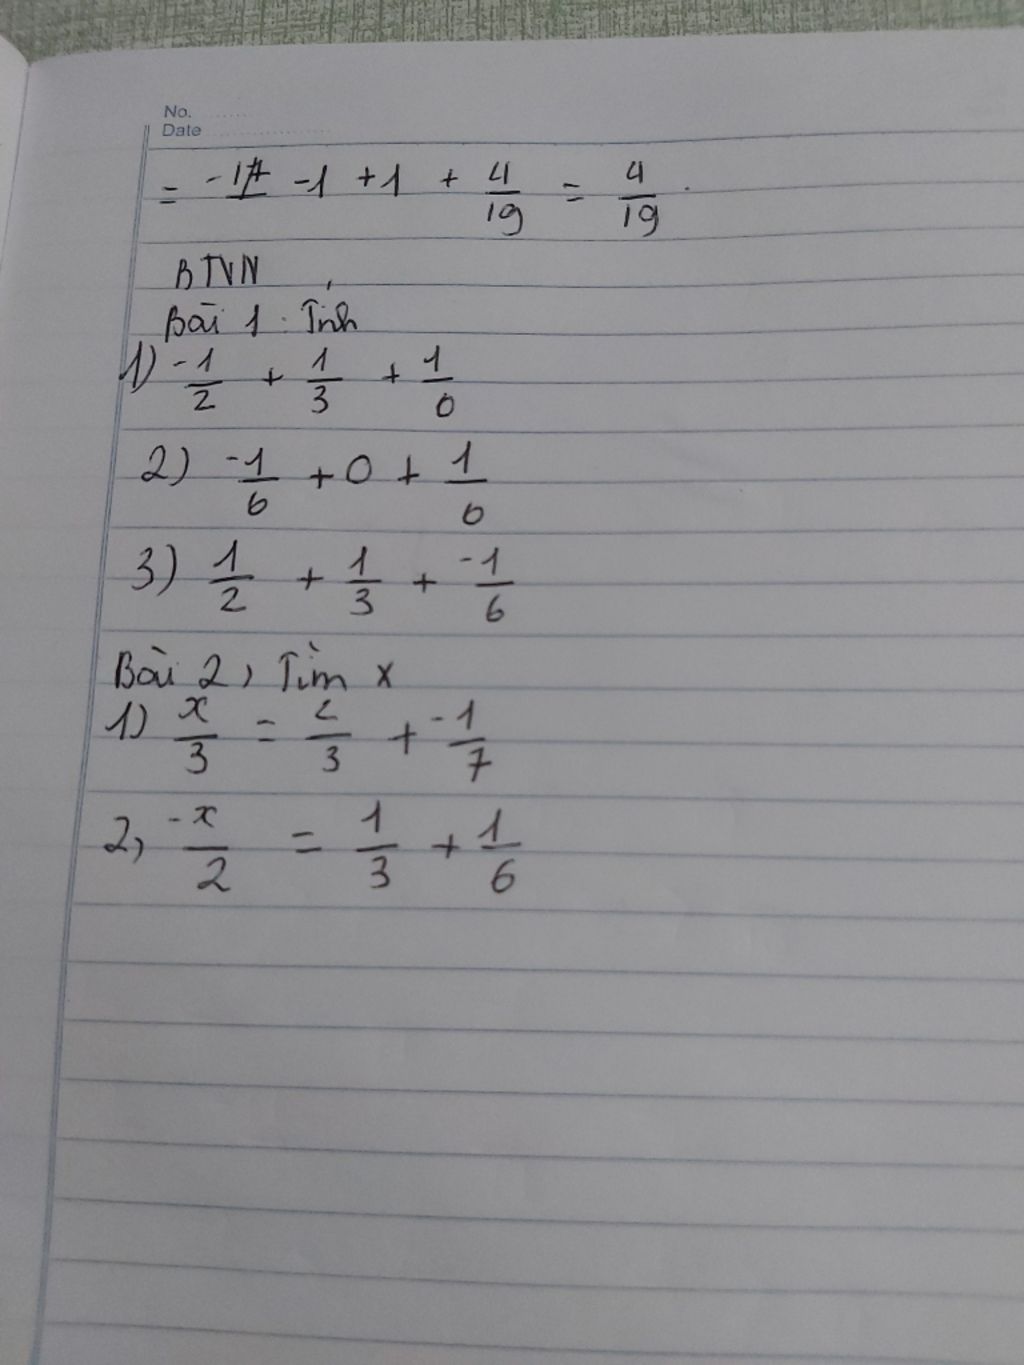 No.
Date
= -1 + 1 + 4/19 = 4/19.
BTVN
Bài 1: Tính
1) -1/2 + 1/3 + 1/6
2) -1/6 + 0 + 1/6
3) 1/2 + 1/3 + -1/6
Bài 2, Tìm x
1) x/3 = 2/3 + -1/7
2, -x/2 = 1/3 + 1/6